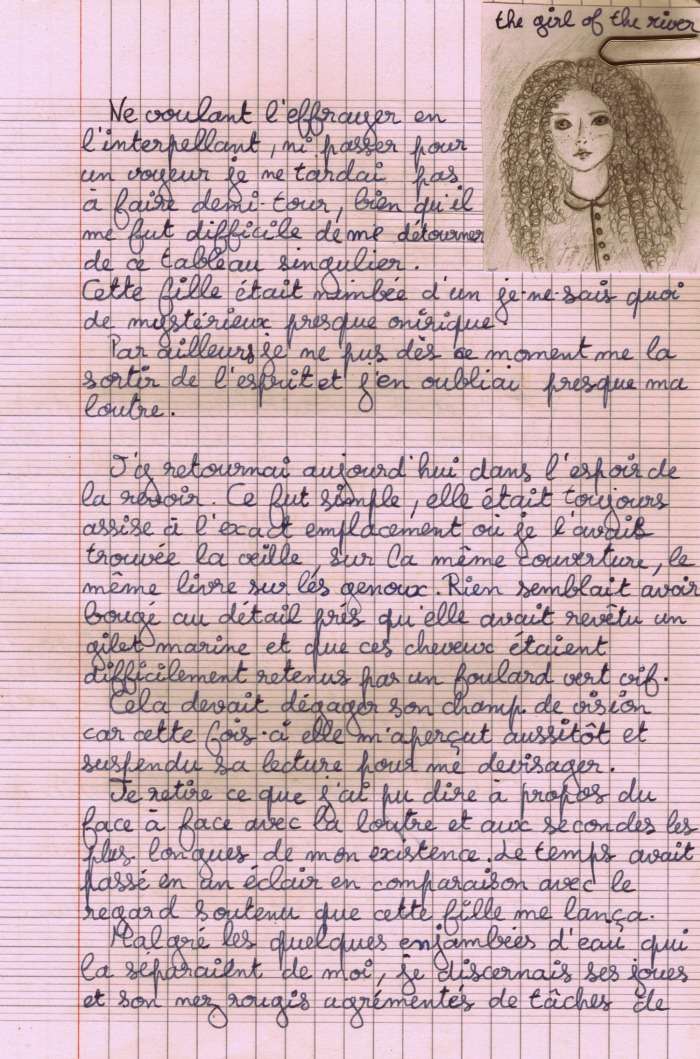 the girl of the river
Ne voulant l'effrayer en
l'interpellant, ni passer pour
un voyeur je ne tardai pas
à faire demi-tour, bien qu'il
me fut difficile de me détourner
de ce tableau singulier.
Cette fille était nimbée d'un je-ne-sais quoi
de mystérieux presque onirique.
Par ailleurs je ne pus dès ce moment me la
sortir de l'esprit et j'en oubliai presque ma
loutre.
J'y retournai aujourd'hui dans l'espoir de
la revoir. Ce fut simple, elle était toujours
assise à l'exact emplacement où je l'avais
trouvée la veille, sur la même couverture, le
même livre sur les genoux. Rien semblait avoir
bougé au détail près qu'elle avait revêtu un
gilet marine et que ces cheveux étaient
difficilement retenus par un foulard vert vif.
Cela devait dégager son champ de vision
car cette fois-ci elle m'aperçut aussitôt et
suspendu sa lecture pour me devisager.
Je retire ce que j'ai pu dire à propos du
face à face avec la loutre et aux secondes les
plus longues de mon existence. Le temps avait
passé en un éclair en comparaison avec le
regard soutenu que cette fille me lança.
Malgré les quelques enjambées d'eau qui
la séparaient de moi, je discernais ses joues
et son nez rougis agrémentés de tâches de